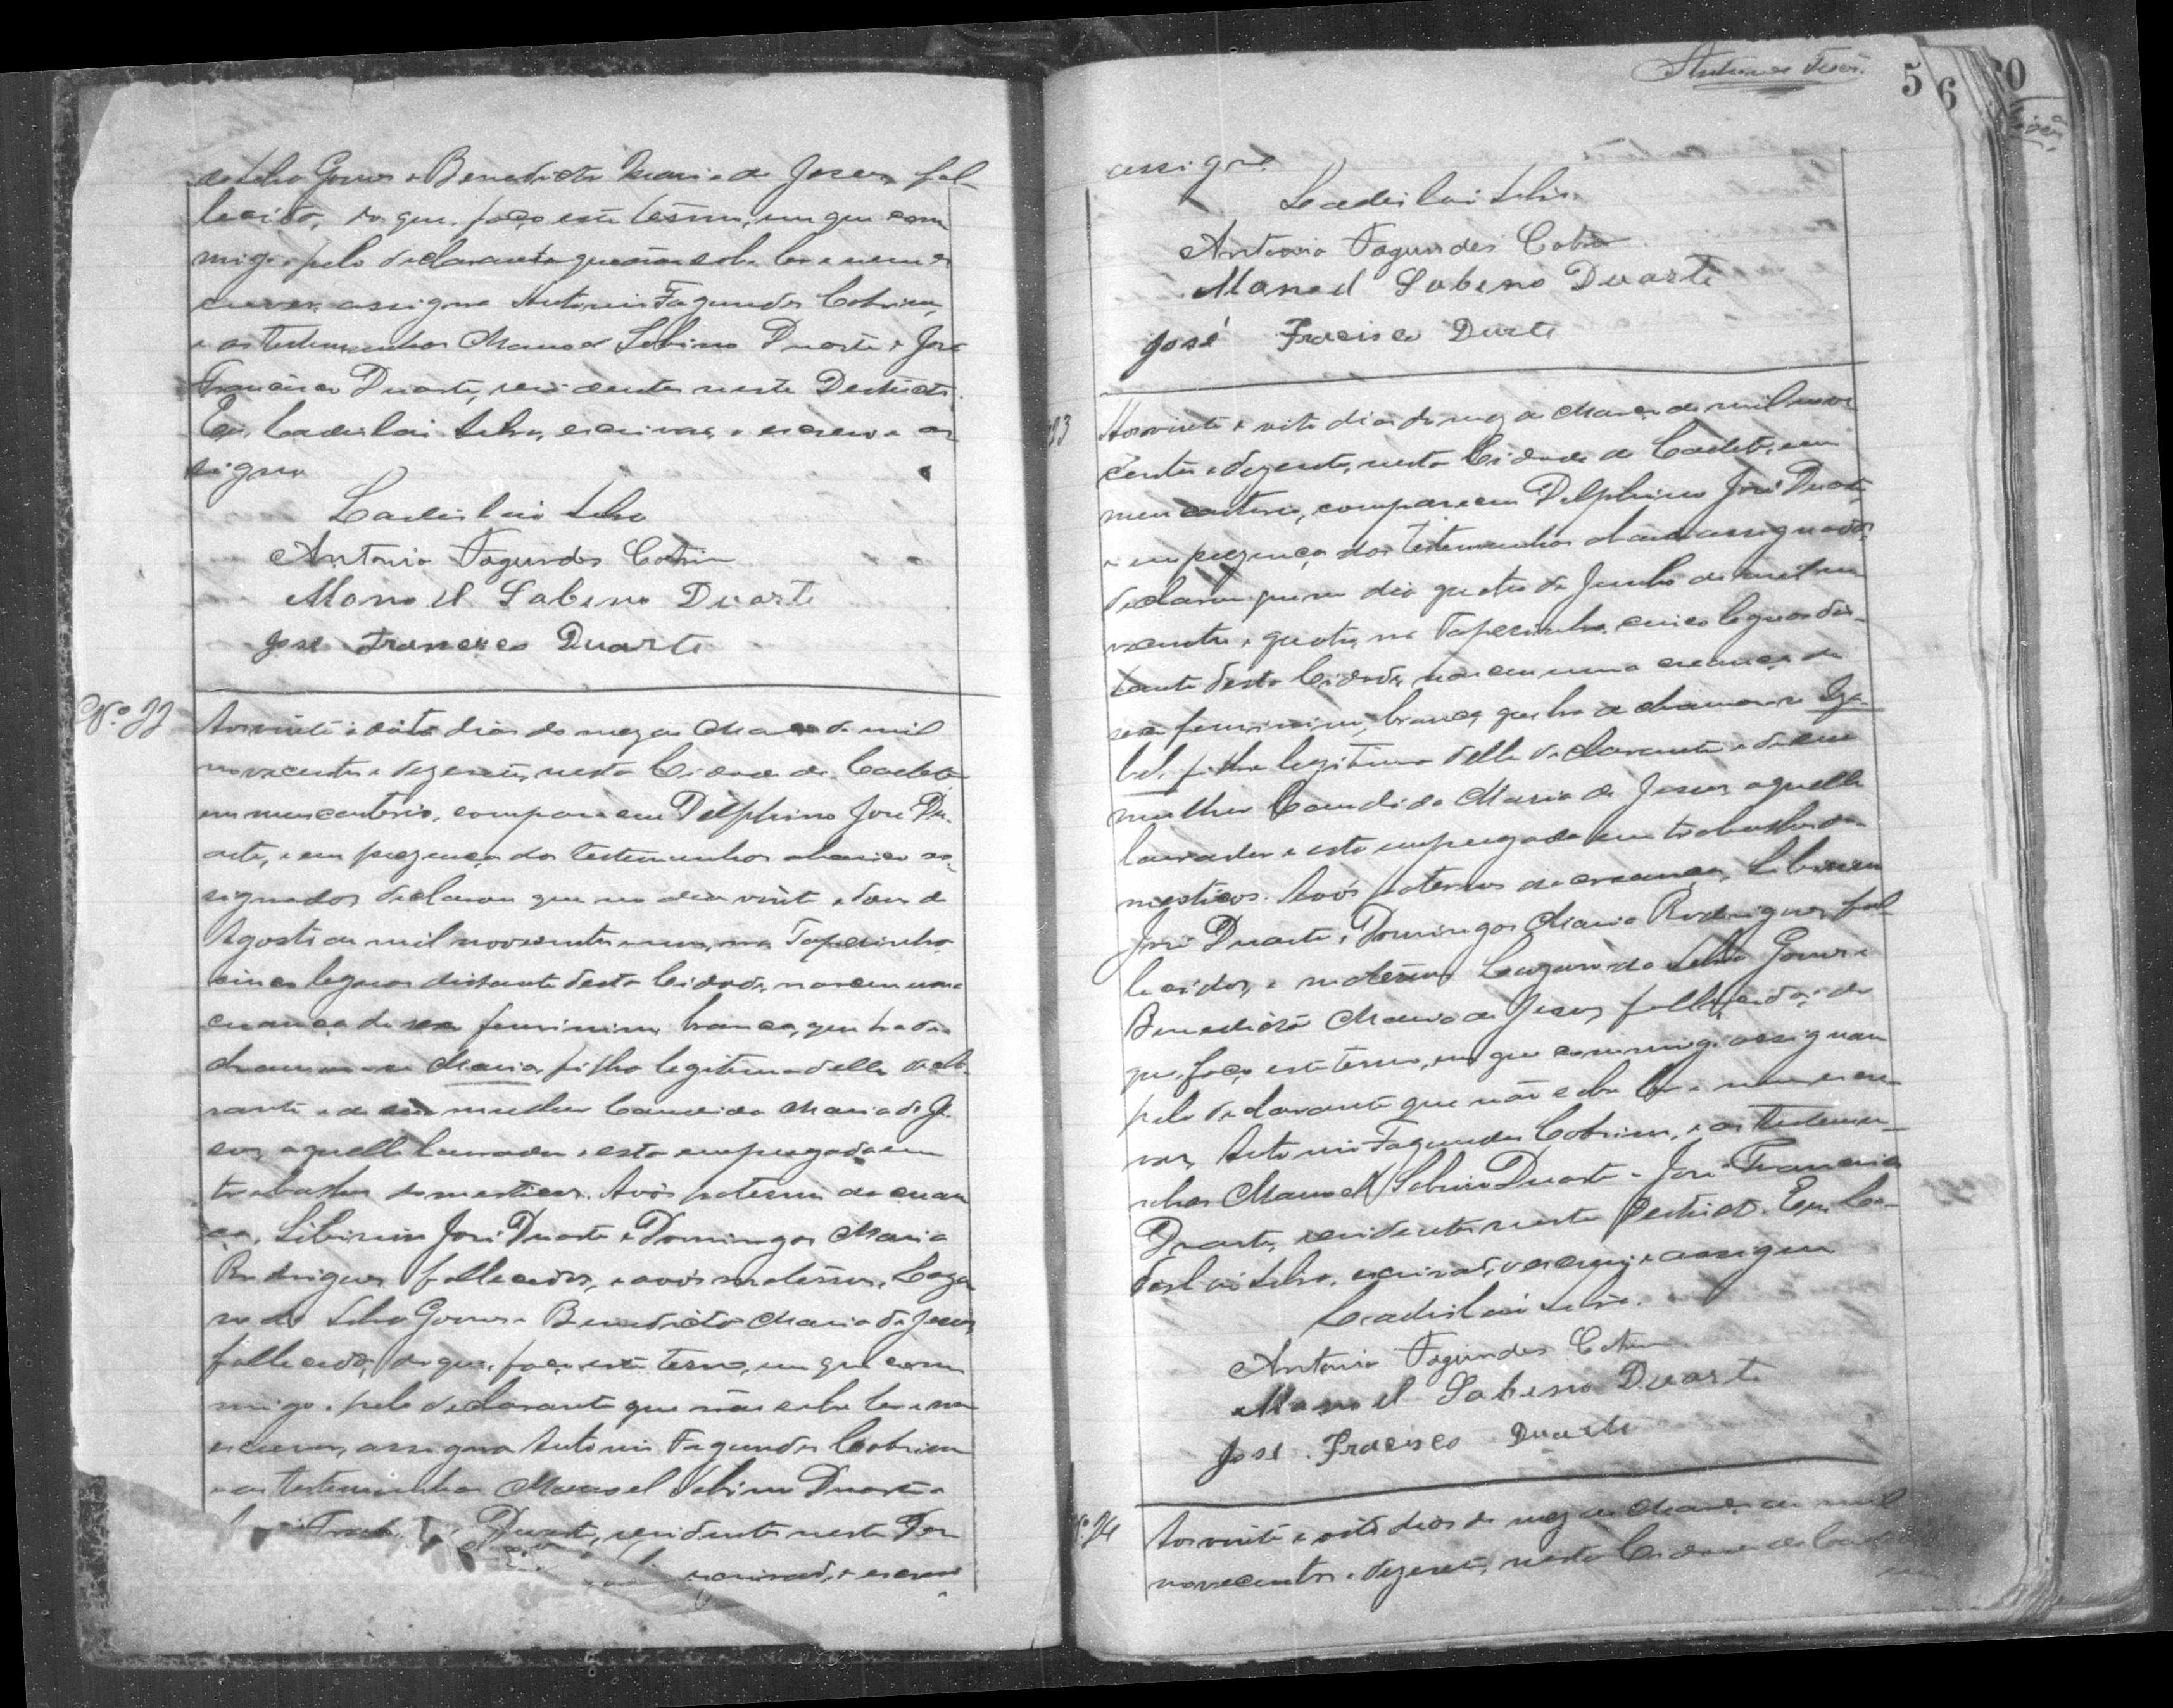 da Silva Gomes e Benedicta Maria de Jesus, fal-
lecida, do que, faço este termo, em que com
migo, pelo declarante que não sabe ler e nem es
crever, assigna Antonio Fagundes Cotrim,
e as testemunhas Manoel Sabino Duarte e José
Francisco Duarte, residentes neste Destricto.
Eu, Ladislai Silva, escrivão, o escrevi e as
signo
Ladislai Silva
Antonio Fagundes Cotrim
Manoel Sabeno Duarte
José Francisco Duarte
Nº 22
Aos vinte e oito dias do mez de Março de mil
novecentos e dezesete, nesta Cidade de Caeteté
em meu cartorio, compareceu Delphino José Du-
arte, e em prezença das testemunhas abaixo as-
signadas declarou que no dia vinte e dous de
Agosto de mil novecentos e um, na Taperinha
cinco leguas distante desta Cidade, nasceu uma
creança de sexo feminino, branca, que ha de
chamar-se Maria, filha legitima delle decla-
rante e de sua mulher Candida Maria de Je-
sus, aquelle lavrador e esta empregada em
trabalhos domesticos. Avós paternos da crean
ça, Sibirino José Duarte e Domingas Maria
Rodrigues fallecidos, e avós maternos, Laza
ro da Silva Gomes e Benedicta Maria de Jesus,
fallecida, do que, faço este termo, em que com
migo, pelo declarante que não sabe ler e nem
escrever, assigna Antonio Fagundes Cotrim
e as testemunhas Manoel Sabino Duarte e
Duarte, residentes neste Des
escrivão, o escrevi
Antunes
5 6 20
assigno
Ladislai Silva
Antonio Fagundes Cotrim
Manoel Sabeno Duarte
José Fracisco Duarte
23
Aos vinte e oito dias do mez de Março de mil nove
centos e dezesete, nesta Cidade de Caeteté, em
meu cartorio, compareceu Delphino José Duarte,
e em prezença das testemunhas abaixo assignadas
declarou que no dia quatro de Junho de mil no
vecentos e quatro, na Taperinha, cinco leguas dis-
tante desta Cidade, nasceu uma creança de
sexo feminino, branca, que ha de chamar-se Iza-
bel, filha legitima delle declarante e de sua
mulher Candida Maria de Jesus, aquelle
lavrador e esta empregada em trabalhos do-
mesticos. Avós paternos da creança, Siberino
José Duarte e Domingas Maria Rodrigues, fal-
lecidos, e maternos Lazaro da Silva Gomes e
Benedicta Maria de Jesus, fallecida, do
que, faço este termo, em que commigo assignam
pelo declarante que não sabe ler e nem escre-
ver, Antonio Fagundes Cotrim, e as testemu-
nhas Manoel Sabino Duarte e José Francisco
Duarte, residentes neste Destricto. Eu, La-
dislai Silva, escrivão, o escrevi e assigno
Ladislai Silva.
Antonio Fagundes Cotrim
Manoel Sabeno Duarte
José Fracisco Duarte
Nº 24
Aos vinte e oito dias do mez de Março de mil
novecentos e dezesete, nesta Cidade de